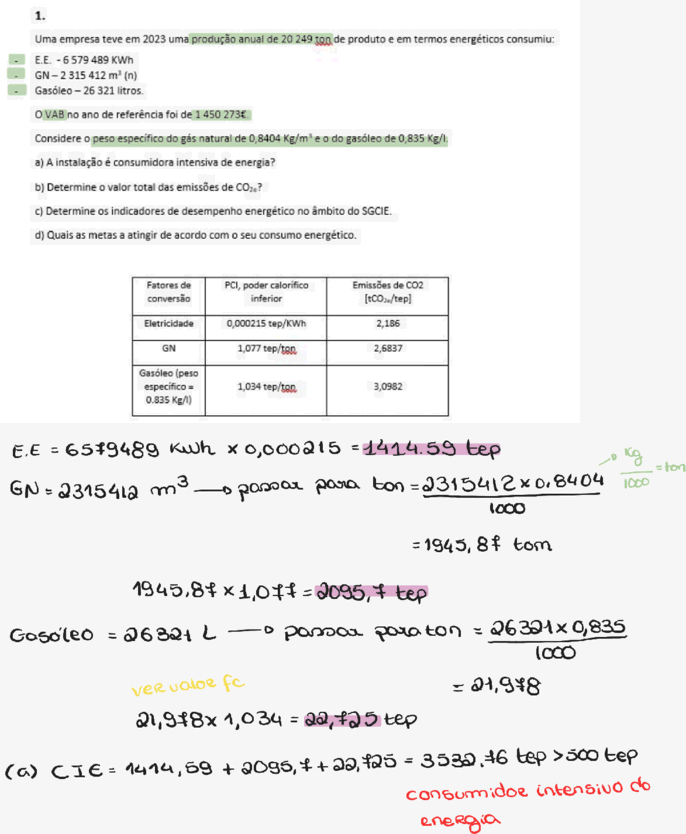 1.
Uma empresa teve em 2023 uma produção anual de 20 249 ton de produto e em termos energéticos consumiu:
- E.E. - 6 579 489 KWh
- GN – 2 315 412 m³ (n)
- Gasóleo – 26 321 litros.
O VAB no ano de referência foi de 1 450 273€
Considere o peso específico do gás natural de 0,8404 Kg/m³ e o do gasóleo de 0,835 Kg/l.
a) A instalação é consumidora intensiva de energia?
b) Determine o valor total das emissões de CO₂ₑ?
c) Determine os indicadores de desempenho energético no âmbito do SGCIE.
d) Quais as metas a atingir de acordo com o seu consumo energético.
Fatores de conversão PCI, poder calorífico inferior Emissões de CO2 [tCO₂ₑ/tep]
Eletricidade 0,000215 tep/KWh 2,186
GN 1,077 tep/ton 2,6837
Gasóleo (peso específico = 0.835 Kg/l) 1,034 tep/ton 3,0982
E.E = 6579489 kWh × 0,000215 = 1414.59 tep
GN = 2315412 m³ → passar para ton = 2315412 × 0.8404 / 1000 → Kg / 1000 = ton
= 1945,87 tom
1945,87 × 1,077 = 2095,7 tep
Gasóleo = 26321 L → passar para ton = 26321 × 0,835 / 1000
= 21,978
ver valor fc
21,978 × 1,034 = 22,725 tep
(a) CIE = 1414,59 + 2095,7 + 22,725 = 3532,76 tep > 500 tep
consumidor intensivo de
energia